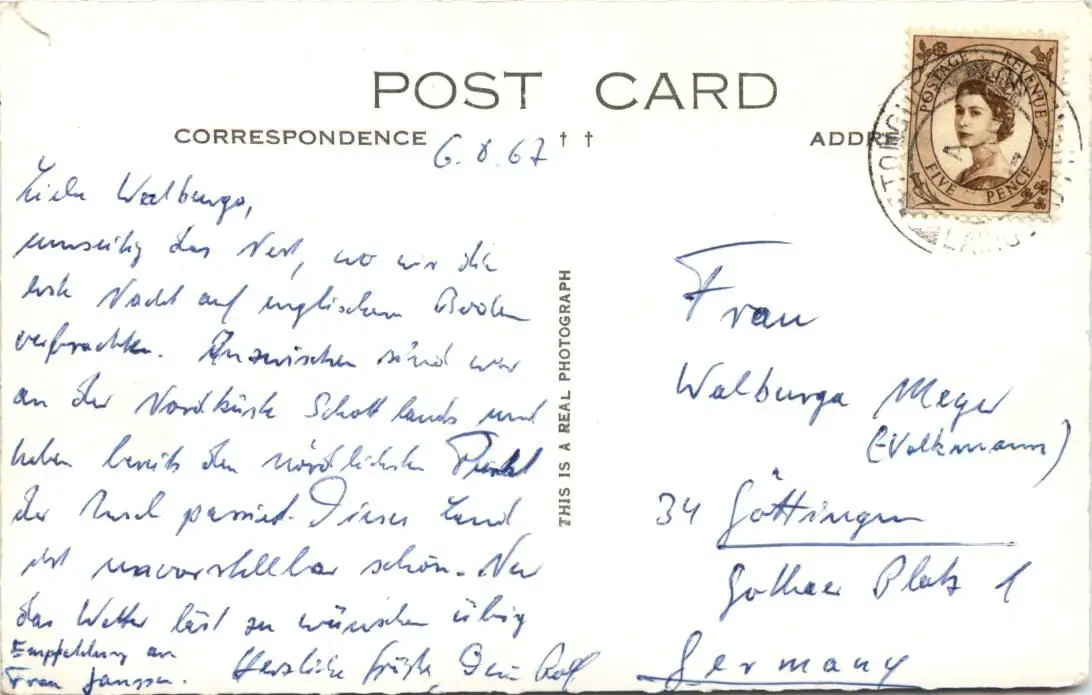 POST CARD
CORRESPONDENCE
ADDR
6.8.67
POSTAGE REVENUE
FIVE PENCE
LAIRG
Liebe Walburga,
umseitig das Nest, wo wir die
erste Nacht auf englischem Boden
verbrachten. Inzwischen sind wir
an der Nordküste Schottlands und
haben bereits den nördlichsten Punkt
der Insel passiert. Dieses Land
ist unvorstellbar schön. Nur
das Wetter läst zu wünschen übrig
Herzliche Grüße, Dein Rolf
Empfehlung an
Frau Janssen.
THIS IS A REAL PHOTOGRAPH
Frau
Walburga Meyer
(Volkmann)
34 Göttingen
Gothaer Platz 1
Germany